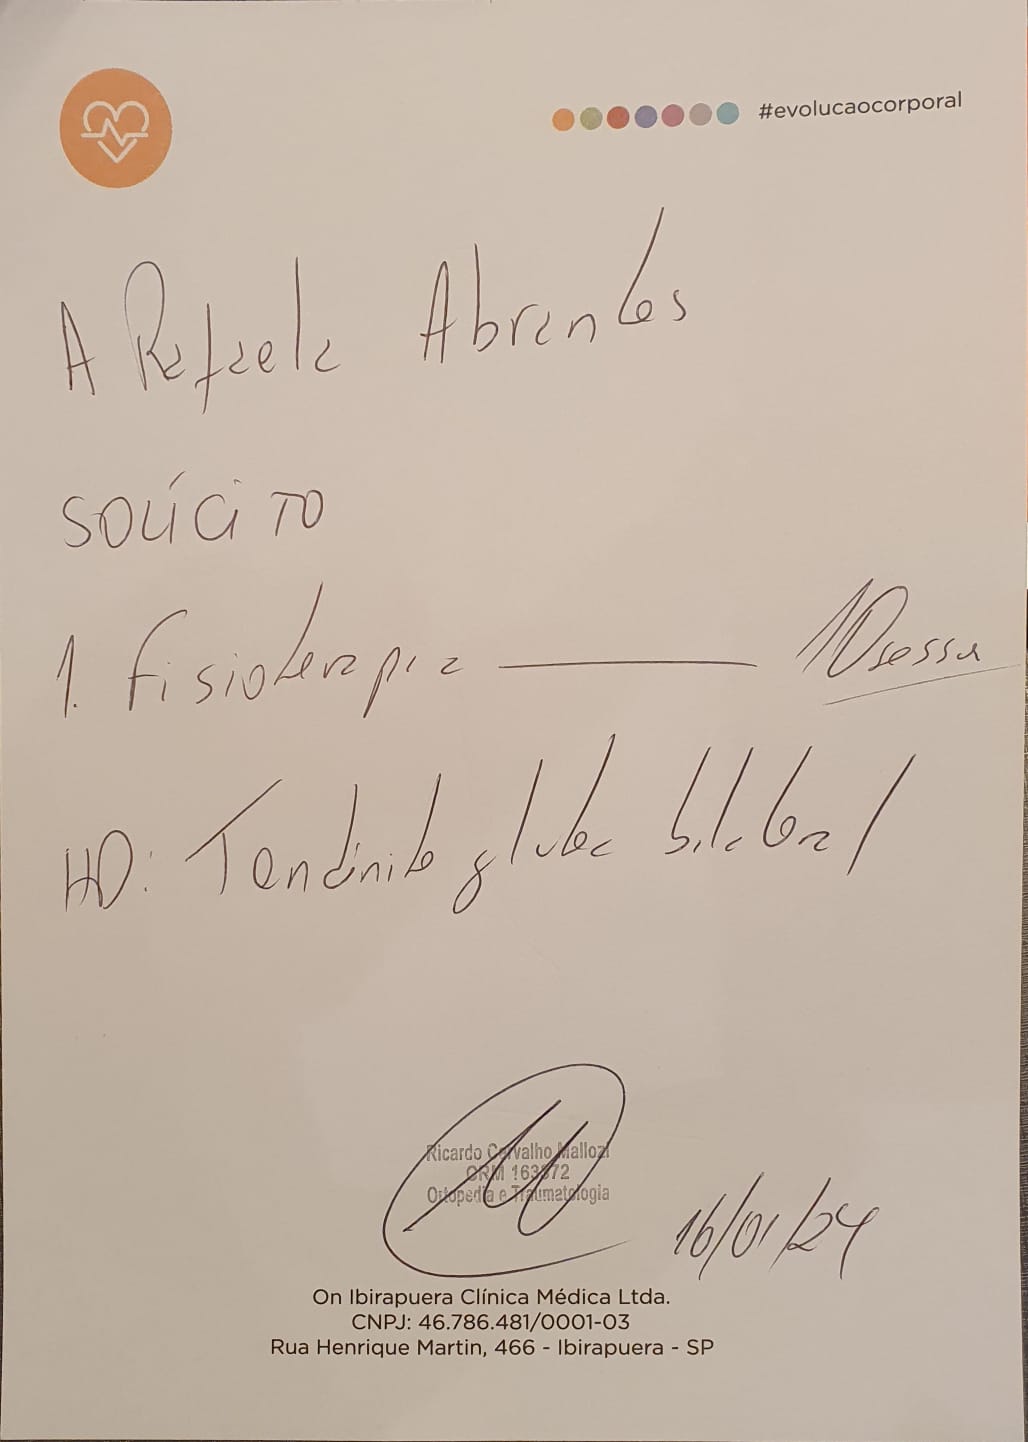 #evolucaocorporal
A Rafaela Abrantes
SOLÍCITO
1. Fisioterapia — 10 sessões
HD: Tendinite glútea bilateral
Ricardo Carvalho Mallozi
CRM 163872
Ortopedia e Traumatologia
16/01/24
On Ibirapuera Clínica Médica Ltda.
CNPJ: 46.786.481/0001-03
Rua Henrique Martin, 466 - Ibirapuera - SP